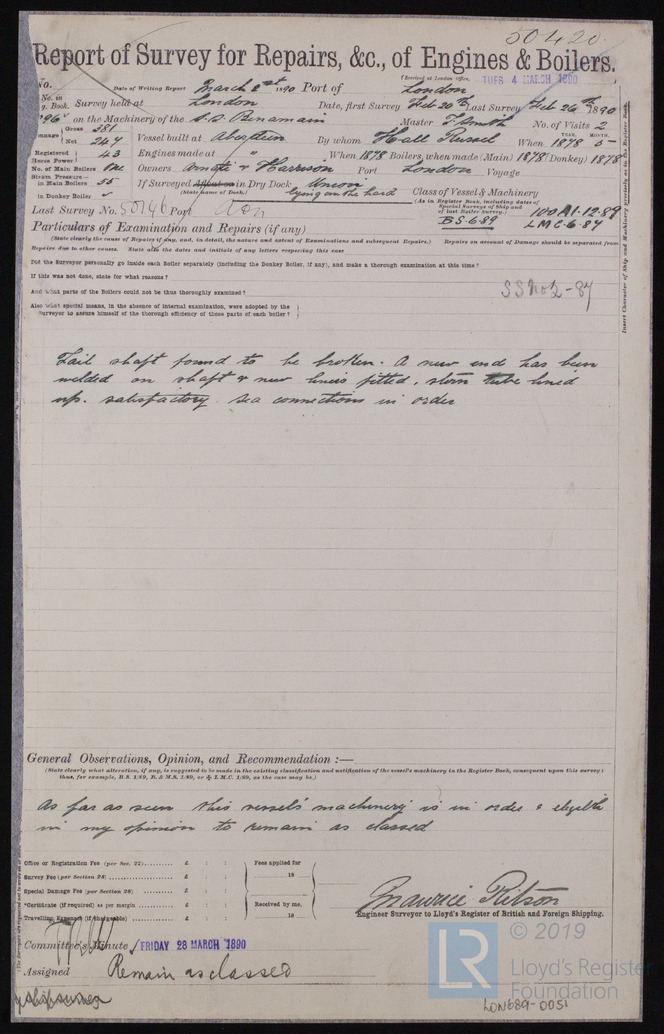 50420
Report of Survey for Repairs, &c., of Engines & Boilers.
(Received at London Office, TUES 4 MARCH 1890
No. Date of Writing Report March 1890 Port of London
No. in Reg. Book. Survey held at London Date, first Survey Feb 20th Last Survey Feb 26th 1890
on the Machinery of the S.S. Benamain Master No. of Visits 2
Tonnage Gross 381 Net 247 Vessel built at Aberdeen By whom Hall Russel When YEAR. 1878 MONTH. 5
Registered Horse Power 43 Engines made at " When 1878 Boilers, when made (Main) 1878 (Donkey) 1878
No. of Main Boilers One Owners & Harrison Port London Voyage
Steam Pressure in Main Boilers 55 If Surveyed Afloat or in Dry Dock Union lying on the hard Class of Vessel & Machinery
in Donkey Boiler (State name of Dock.) (As in Register Book, including dates of Special Surveys of Ship and of last Boiler Survey.) 100A1-12-89
Last Survey No. 50146 Port Lon B.S-6-89 LMC-6-87
Particulars of Examination and Repairs (if any)
(State clearly the cause of Repairs if any, and, in detail, the nature and extent of Examinations and subsequent Repairs.) Repairs on account of Damage should be separated from
Repairs due to other causes. State also the dates and initials of any letters respecting this case
Did the Surveyor personally go inside each Boiler separately (including the Donkey Boiler, if any), and make a thorough examination at this time?
If this was not done, state for what reasons?
And what parts of the Boilers could not be thus thoroughly examined?
SS No 2-87
Also what special means, in the absence of internal examination, were adopted by the
Surveyor to assure himself of the thorough efficiency of those parts of each boiler?
Tail shaft found to be broken. A new end has been
welded on shaft & new liners fitted, stern tube lined
up. satisfactory sea connections in order
General Observations, Opinion, and Recommendation :—
(State clearly what alteration, if any, is suggested to be made in the existing classification and notification of the vessel's machinery in the Register Book, consequent upon this survey;
thus, for example, B.S. 1/89, B. & M.S. 1/89, or L.M.C. 1/89, as the case may be.)
As far as seen this vessel's machinery is in order & eligible
in my opinion to remain as classed
Office or Registration Fee (per Sec. 27).......... £ : : Fees applied for
Survey Fee (per Section 28)................ £ : : 18
Special Damage Fee (per Section 28)......... £ : :
*Certificate (if required) as per margin ......... £ : : Received by me,
Travelling Expenses (if chargeable) ......... £ : : 18
Maurice Ritson
Engineer Surveyor to Lloyd's Register of British and Foreign Shipping.
Committee's Minute FRIDAY 28 MARCH 1890
Assigned Remain as classed
Insert Character of Ship and Machinery precisely as in the Register Book.
© 2019
LR
Lloyd's Register
Foundation
LON689-0051